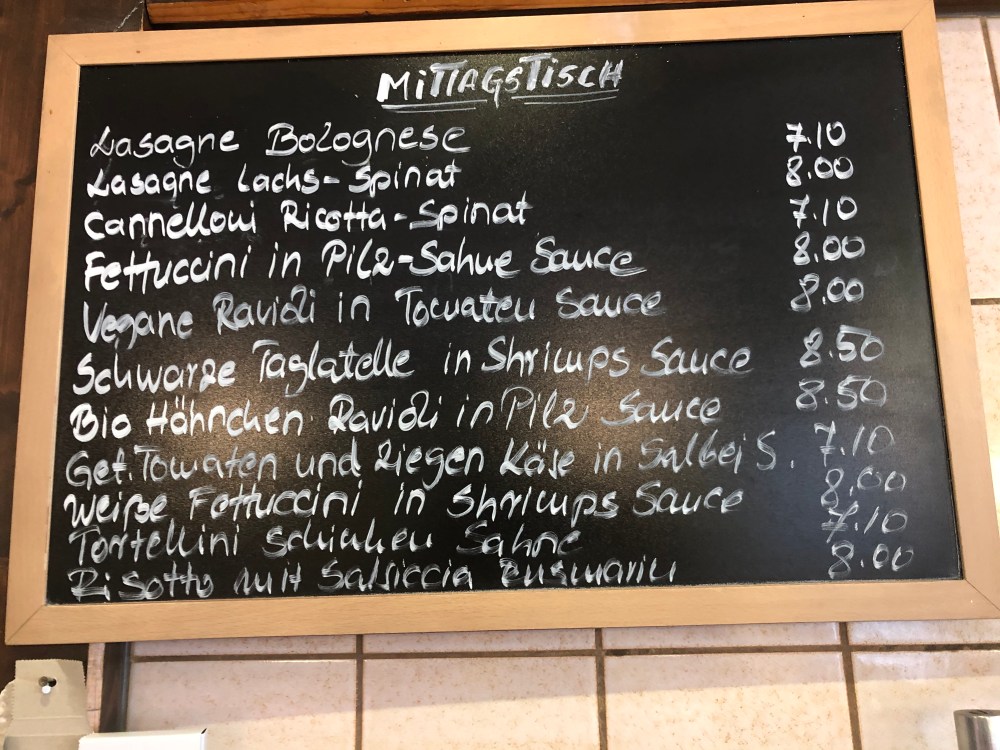 MITTAGSTISCH
Lasagne Bolognese 7.10
Lasagne Lachs-Spinat 8.00
Cannelloni Ricotta-Spinat 7.10
Fettuccini in Pilz-Sahne Sauce 8.00
Vegane Ravioli in Tomaten Sauce 8.00
Schwarze Taglatelle in Shrimps Sauce 8.50
Bio Hähnchen Ravioli in Pilz Sauce 8.50
Get. Tomaten und Ziegen Käse in Salbei S. 7.10
Weiße Fettuccini in Shrimps Sauce 8.00
Tortellini Schinken Sahne 7.10
Risotto mit Salsiccia Rusmarin 8.00